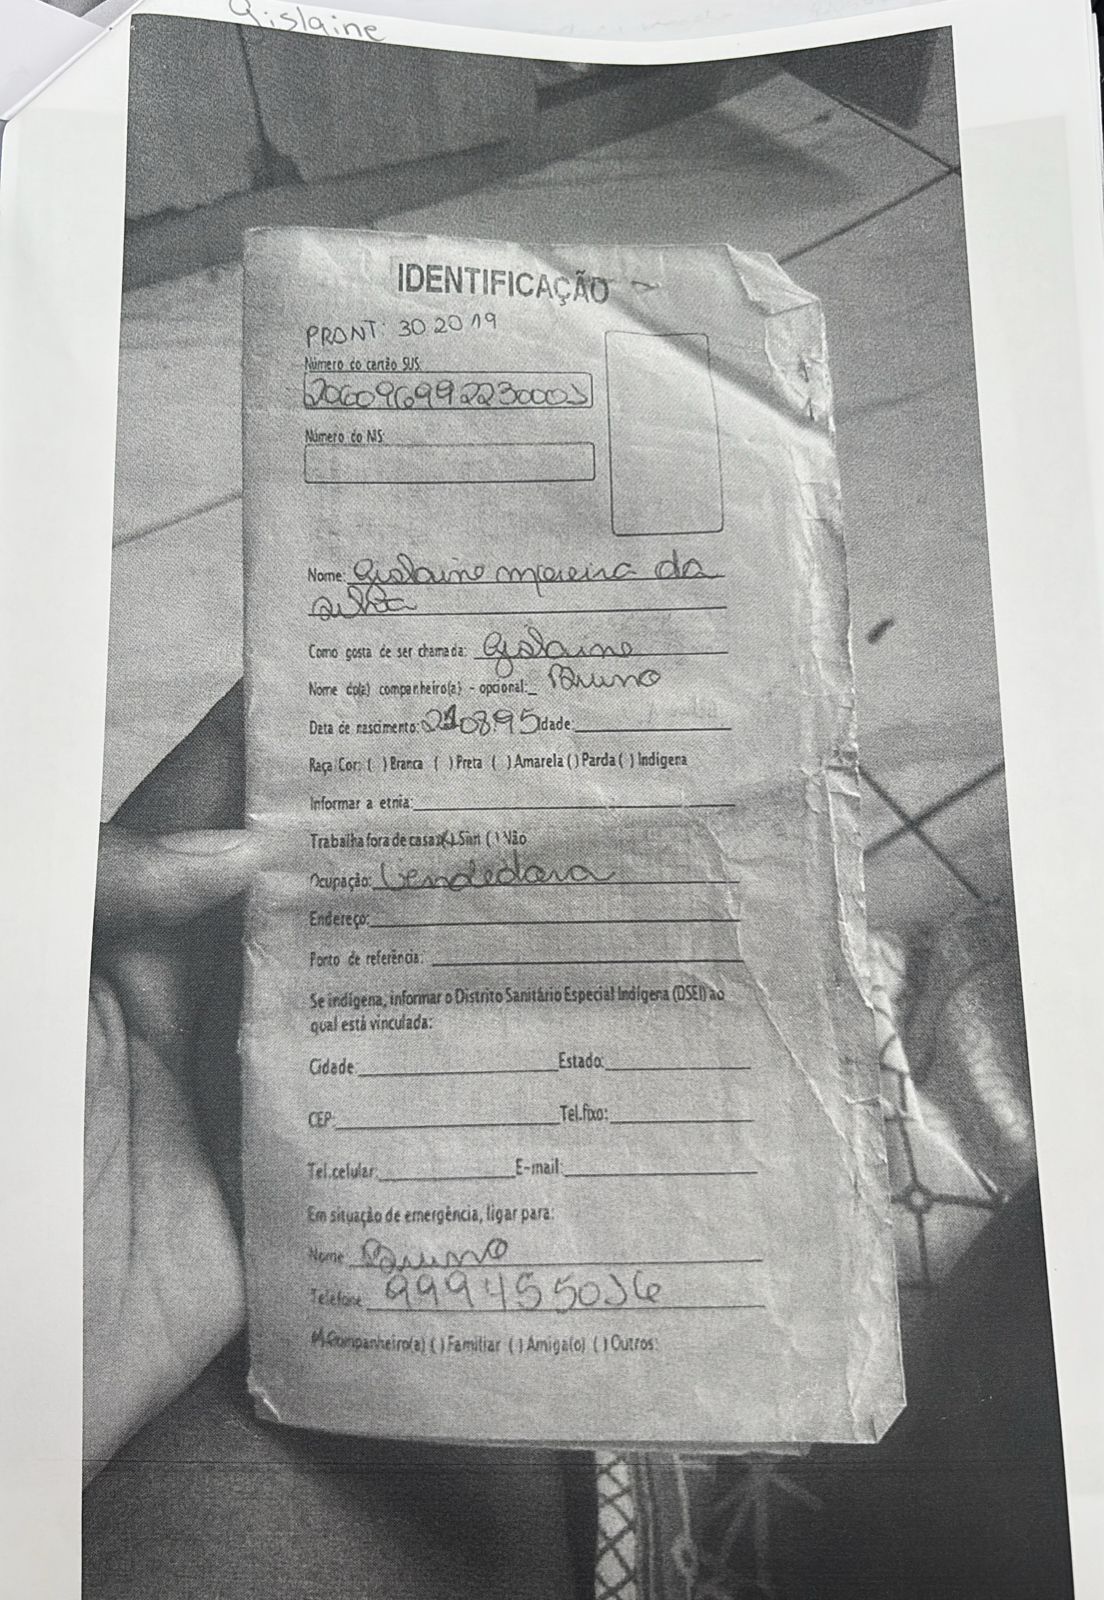 Gislaine
IDENTIFICAÇÃO
PRONT: 30.20 19
Número do cartão SUS:
Número do NIS:
Nome: Gislaine moreira da
silva
Como gosta de ser chamada: Gislaine
Nome do(a) companheiro(a) - opcional: Bruno
Data de nascimento: 08.95 Idade:
Raça Cor: ( ) Branca ( ) Preta ( ) Amarela ( ) Parda ( ) Indígena
Informar a etnia:
Trabalha fora de casa: (x) Sim ( ) Não
Ocupação: Vendedora
Endereço:
Ponto de referência:
Se indígena, informar o Distrito Sanitário Especial Indígena (DSEI) ao
qual está vinculada:
Cidade: Estado:
CEP: Tel.fixo:
Tel.celular: E-mail:
Em situação de emergência, ligar para:
Nome Bruno
Telefone
(x) Companheiro(a) ( ) Familiar ( ) Amiga(o) ( ) Outros: